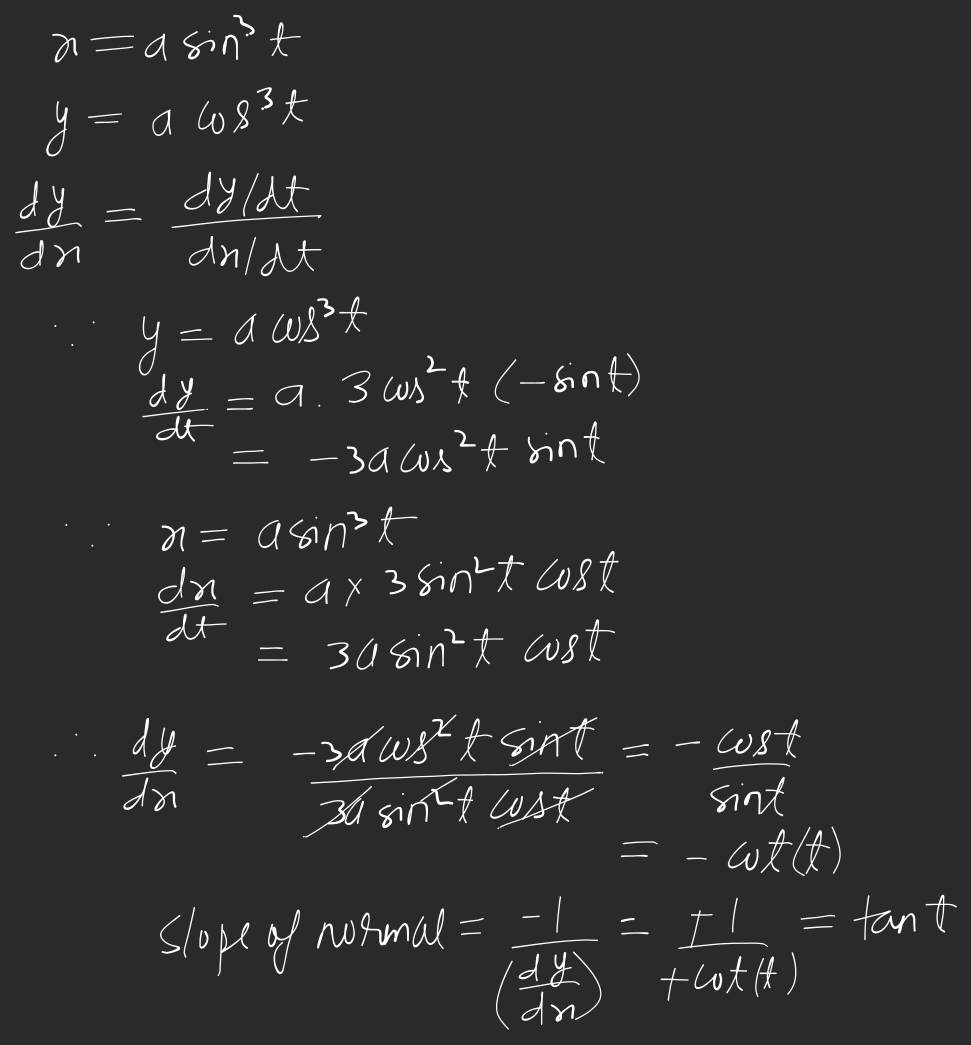 x = a sin³ t
y = a cos³ t
dy/dx = (dy/dt)/(dx/dt)
∵ y = a cos³ t
dy/dt = a. 3 cos² t (-sin t)
= -3a cos² t sin t
∵ x = a sin³ t
dx/dt = a × 3 sin² t cos t
= 3a sin² t cos t
∴ dy/dx = (-3a cos² t sin t)/(3a sin² t cos t) = - cos t/sin t
= - cot(t)
slope of normal = -1/(dy/dx) = +1/+cot(t) = tan t